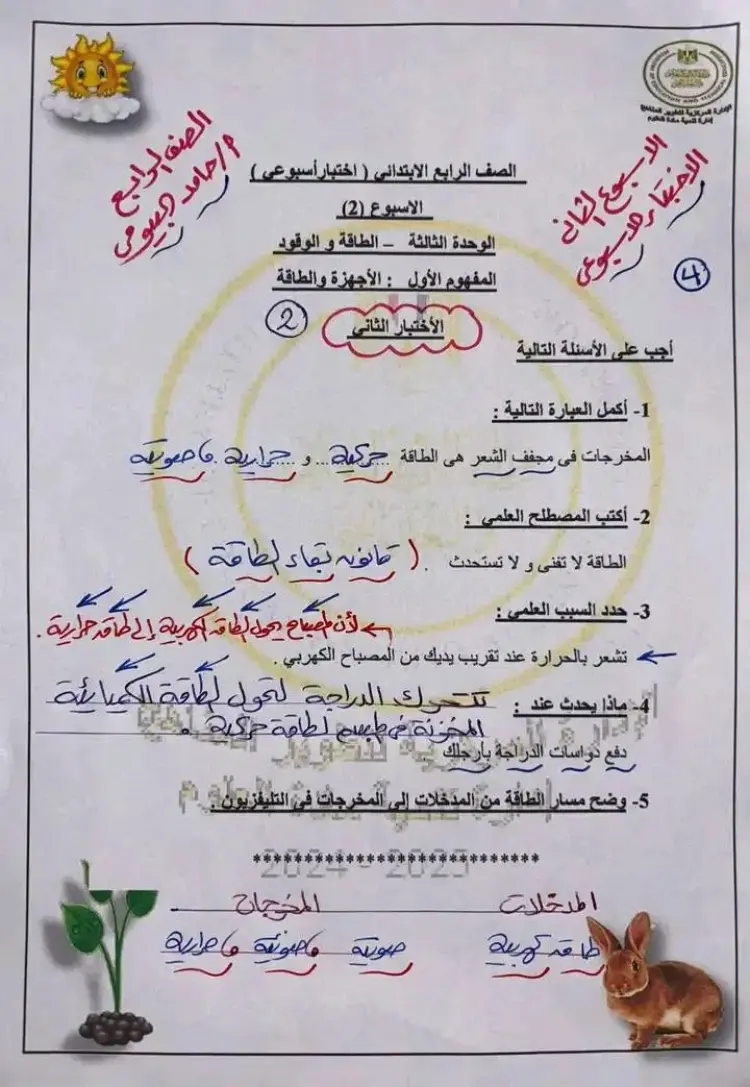 الإدارة المركزية لتطوير المناهج
إدارة تنمية مادة العلوم
الصف الرابع
أ/ حامد البيومى
الاسبوع الثانى
الاختبار الاسبوعى
4
الصف الرابع الابتدائي ( اختبار أسبوعى )
الاسبوع (2)
الوحدة الثالثة – الطاقة و الوقود
المفهوم الأول : الأجهزة والطاقة
2
الأختبار الثاني
أجب على الأسئلة التالية
1- أكمل العبارة التالية :
المخرجات فى مجفف الشعر هى الطاقة حركية و حرارية و صوتية
2- أكتب المصطلح العلمي :
الطاقة لا تفنى و لا تستحدث . ( قانون بقاء الطاقة )
3- حدد السبب العلمي :
لأن المصباح يحول الطاقة الكهربية إلى طاقة حرارية .
تشعر بالحرارة عند تقريب يديك من المصباح الكهربي .
4- ماذا يحدث عند : تتحرك الدراجة لتحول الطاقة الكيميائية
المخزنة فى الجسم لطاقة حركية .
دفع دواسات الدراجة بأرجلك
5- وضح مسار الطاقة من المدخلات إلى المخرجات فى التليفزيون .
الإدارة المركزية لتطوير المناهج
إدارة تنمية مادة العلوم
***************************
2024 - 2025
المدخلات المخرجات
طاقة كهربية صوتية و ضوئية و حرارية